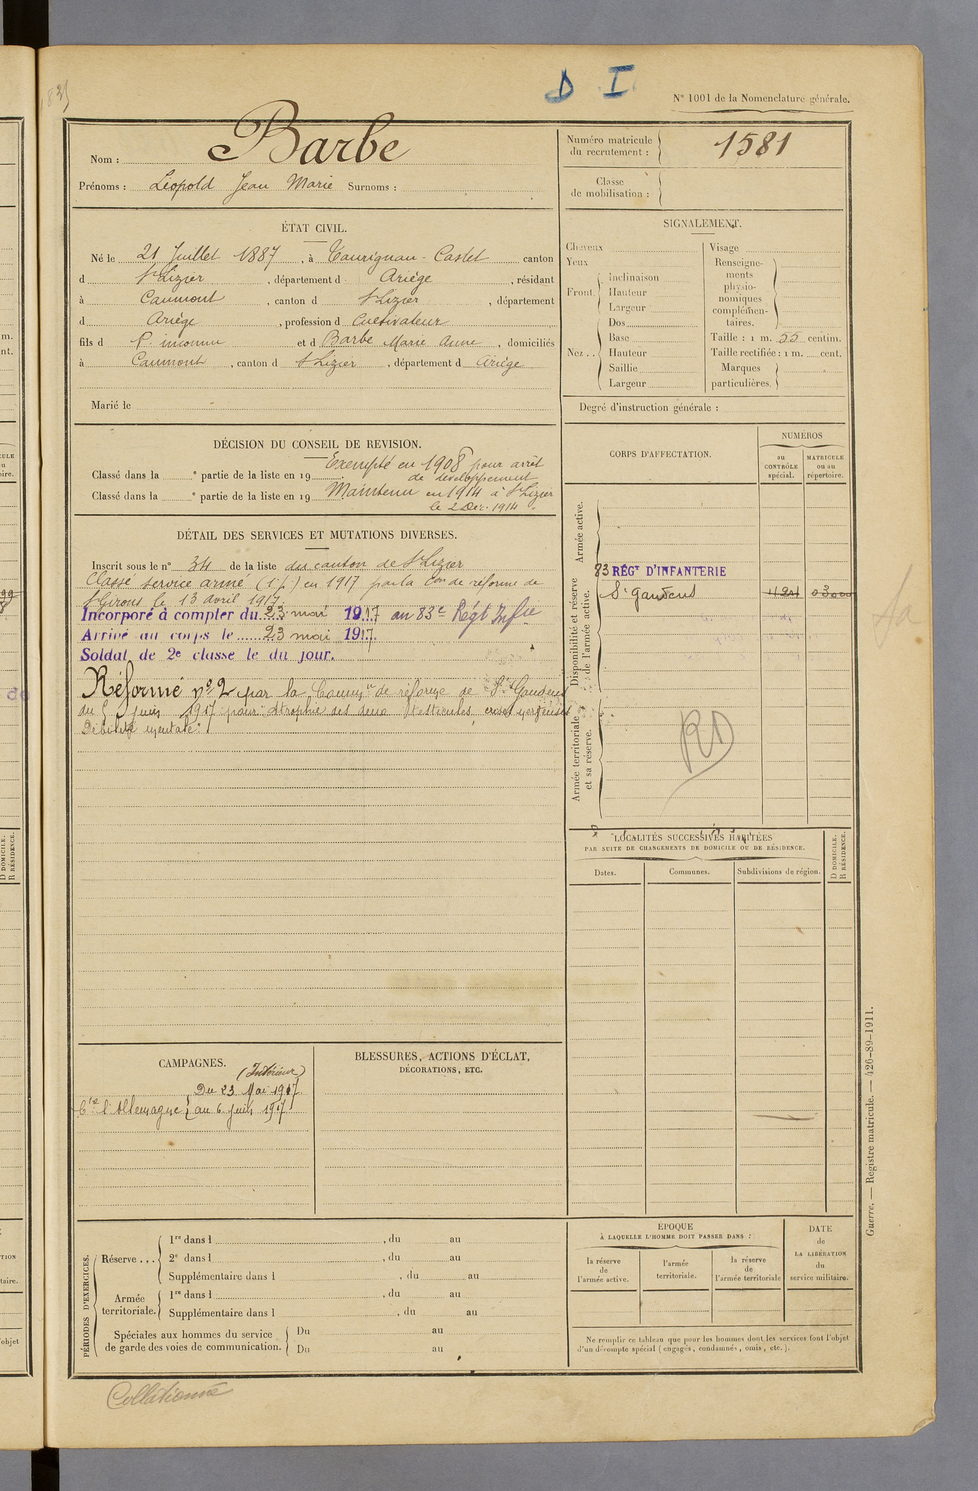 D I
N° 1001 de la Nomenclature générale.
Nom : Barbe
Prénoms : Léopold Jean Marie Surnoms :
Numéro matricule du recrutement : 1581
Classe de mobilisation :
ÉTAT CIVIL.
Né le 21 Juillet 1887, à Taurignan-Castet canton
d St Lizier, département d Ariège, résidant
à Caumont, canton d St Lizier, département
d Ariège, profession d Cultivateur
fils d P. inconnu et d Barbe Marie Anne, domiciliés
à Caumont, canton d St Lizier, département d Ariège
Marié le
SIGNALEMENT.
Cheveux
Yeux
Front. inclinaison
Hauteur
Largeur
Nez... Dos
Base
Hauteur
Saillie
Largeur
Visage
Renseigne-
ments
physio-
nomiques
complémen-
taires.
Taille : 1 m. 55 centim.
Taille rectifiée : 1 m. cent.
Marques
particulières.
Degré d'instruction générale :
DÉCISION DU CONSEIL DE REVISION.
Exempté en 1908 pour arrêt
Classé dans la e partie de la liste en 19 de développement
Classé dans la e partie de la liste en 19 Maintenu en 1914 à St Lizier
le 2 Dec. 1914.
DÉTAIL DES SERVICES ET MUTATIONS DIVERSES.
Inscrit sous le n° 34 de la liste du canton de St Lizier
Classé service armé en 1917 par la Con de réforme de
St Girons le 13 avril 1917
Incorporé à compter du 23 mai 1917 au 83e Régt Infie
Arrivé au corps le 23 mai 1917.
Soldat de 2e classe le du jour.
Réformé n° 2 par la Commion de réforme de St Gaudens
du 5 juin 1917 pour: Atrophie des deux testicules,
Débilité mentale.
CORPS D'AFFECTATION.
NUMÉROS
AU CONTRÔLE spécial.
MATRICULE ou au répertoire.
Armée active.
Disponibilité et réserve de l'armée active.
Armée territoriale et sa réserve.
83 RÉGT D'INFANTERIE
St Gaudens
RD
LOCALITÉS SUCCESSIVES HABITÉES
PAR SUITE DE CHANGEMENTS DE DOMICILE OU DE RÉSIDENCE.
Dates.
Communes.
Subdivisions de région.
D DOMICILE.
R RÉSIDENCE.
CAMPAGNES.
(Intérieur)
Du 23 Mai 1917
Ctre l'Allemagne au 6 Juin 1917
BLESSURES, ACTIONS D'ÉCLAT,
DÉCORATIONS, ETC.
PÉRIODES D'EXERCICES.
Réserve...
1re dans l , du au
2e dans l , du au
Supplémentaire dans l , du au
Armée territoriale.
1re dans l , du au
Supplémentaire dans l , du au
Spéciales aux hommes du service
de garde des voies de communication.
Du au
Du au
ÉPOQUE
À LAQUELLE L'HOMME DOIT PASSER DANS :
la réserve de l'armée active.
l'armée territoriale.
la réserve de l'armée territoriale
DATE
de
LA LIBÉRATION
du
service militaire.
Ne remplir ce tableau que pour les hommes dont les services font l'objet
d'un décompte spécial (engagés, condamnés, omis, etc.).
Guerre. — Registre matricule. — 426-89-1911.
Collationné